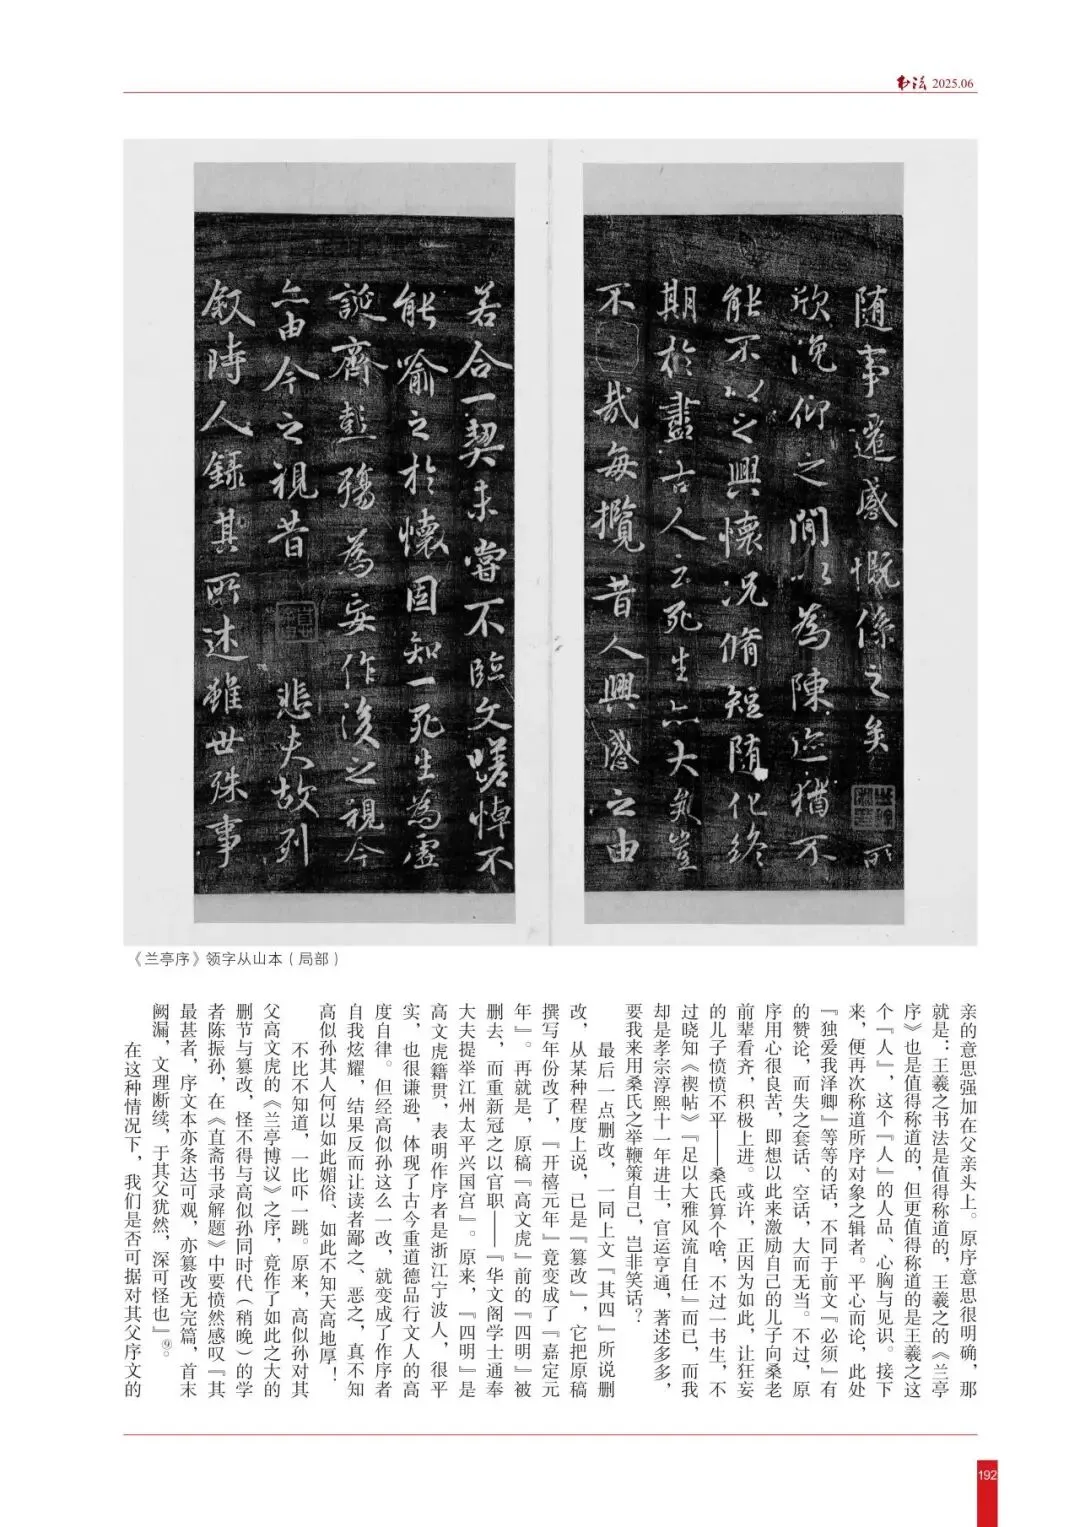 书法 2025.06
随事遷感慨係之矣 所
欣俛仰之間以為陳迹猶不
能不以之興懷况脩短随化終
期於盡古人云死生亦大矣豈
不 哉每攬昔人興感之由
若合一契未嘗不臨文嗟悼不
能喻之於懷固知一死生為虛
誕齊彭殤為妄作後之視今
亦由今之視昔 悲夫故列
叙時人録其所述雖世殊事
《兰亭序》领字从山本（局部）
亲的意思强加在父亲头上。原序意思很明确，那
就是：王羲之书法是值得称道的，王羲之的《兰亭
序》也是值得称道的，但更值得称道的是王羲之这
个『人』，这个『人』的人品、心胸与见识。接下
来，便再次称道所序对象之辑者。平心而论，此处
『独爱我泽卿』等等的话，不同于前文『必须』有
的赞论，而失之套话、空话，大而无当。不过，原
序用心很良苦，即想以此来激励自己的儿子向桑老
前辈看齐，积极上进。或许，正因为如此，让狂妄
的儿子愤愤不平——桑氏算个啥，不过一书生，不
过晓知《禊帖》『足以大雅风流自任』而已，而我
却是孝宗淳熙十一年进士，官运亨通，著述多多，
要我来用桑氏之举鞭策自己，岂非笑话？
最后一点删改，一同上文『其四』所说删
改，从某种程度上说，已是『篡改』，它把原稿
撰写年份改了，『开禧元年』竟变成了『嘉定元
年』。再就是，原稿『高文虎』前的『四明』被
删去，而重新冠之以官职——『华文阁学士通奉
大夫提举江州太平兴国宫』。原来，『四明』是
高文虎籍贯，表明作序者是浙江宁波人，很平
实，也很谦逊，体现了古今重道德品行文人的高
度自律。但经高似孙这么一改，就变成了作序者
自我炫耀，结果反而让读者鄙之、恶之，真不知
高似孙其人何以如此媚俗、如此不知天高地厚！
不比不知道，一比吓一跳。原来，高似孙对其
父高文虎的《兰亭博议》之序，竟作了如此之大的
删节与篡改，怪不得与高似孙同时代（稍晚）的学
者陈振孙，在《直斋书录解题》中要愤然感叹『其
最甚者，序文本亦条达可观，亦篡改无完篇，首末
阙漏，文理断续，于其父犹然，深可怪也』⑨。
在这种情况下，我们是否可据对其父序文的
192